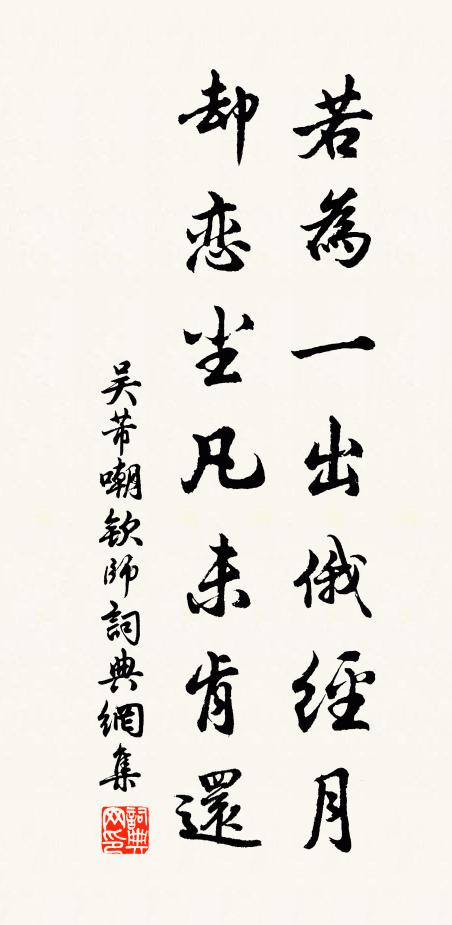 若為一出俄經月
却恋尘凡未肯還
吴芾嘲欽師詞典網集
詞典网印